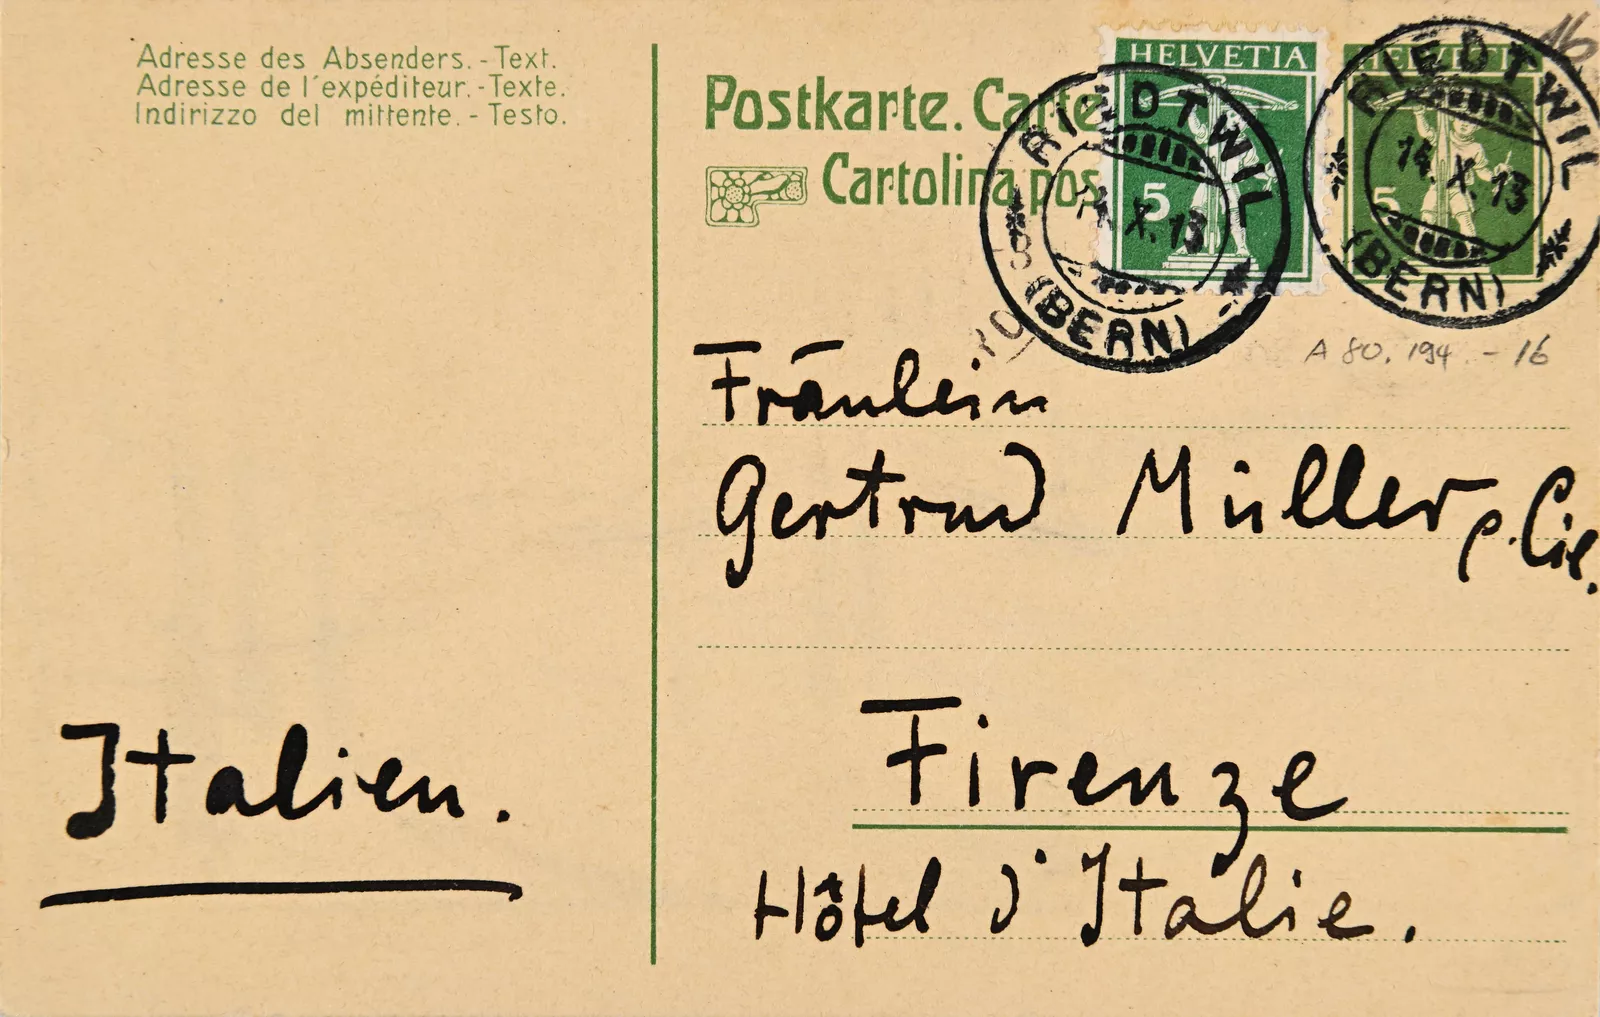 Adresse des Absenders. - Text.
Adresse de l'expéditeur. - Texte.
Indirizzo del mittente. - Testo.
Postkarte. Carte
Cartolina pos
HELVETIA
5
RIEDTWIL
14.X.13
(BERN)
HELVETIA
5
RIEDTWIL
14.X.13
(BERN)
16
A 80. 194 - 16
Fräulein
Gertrud Müller, p. Cie.
Firenze
Hôtel d'Italie.
Italien.